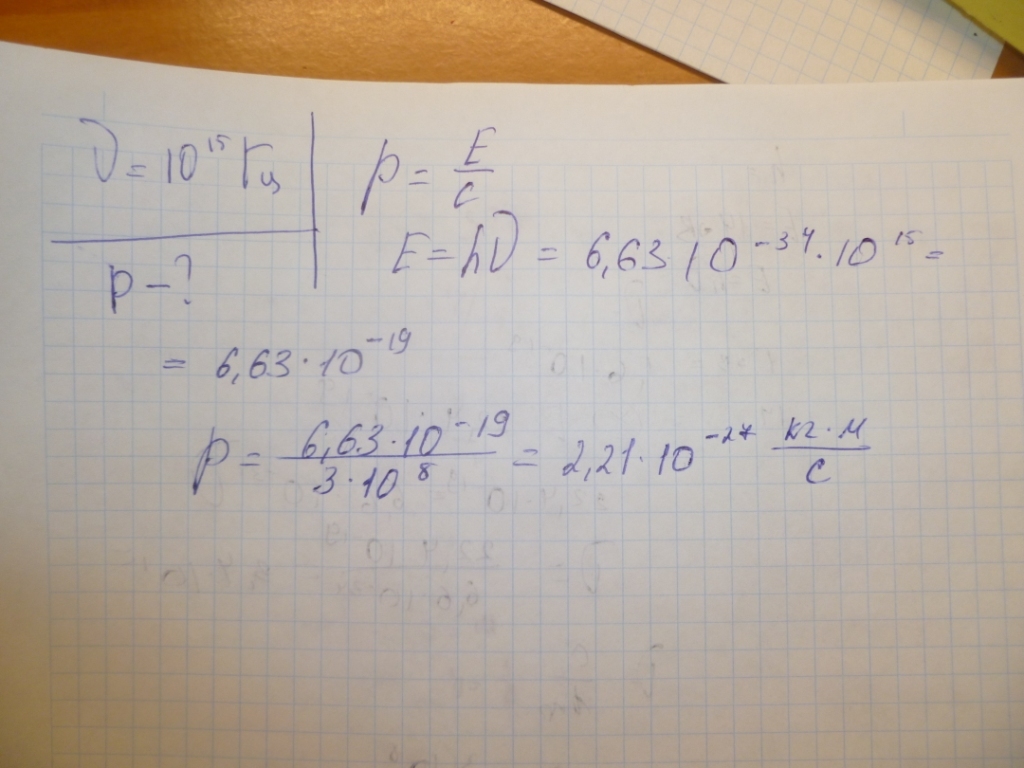 ν = 10¹⁵ Гц
p - ?
p = E/c
E = hν = 6,63 · 10⁻³⁴ · 10¹⁵ =
= 6,63 · 10⁻¹⁹
p = 6,63 · 10⁻¹⁹ / 3 · 10⁸ = 2,21 · 10⁻²⁷ кг · м / с